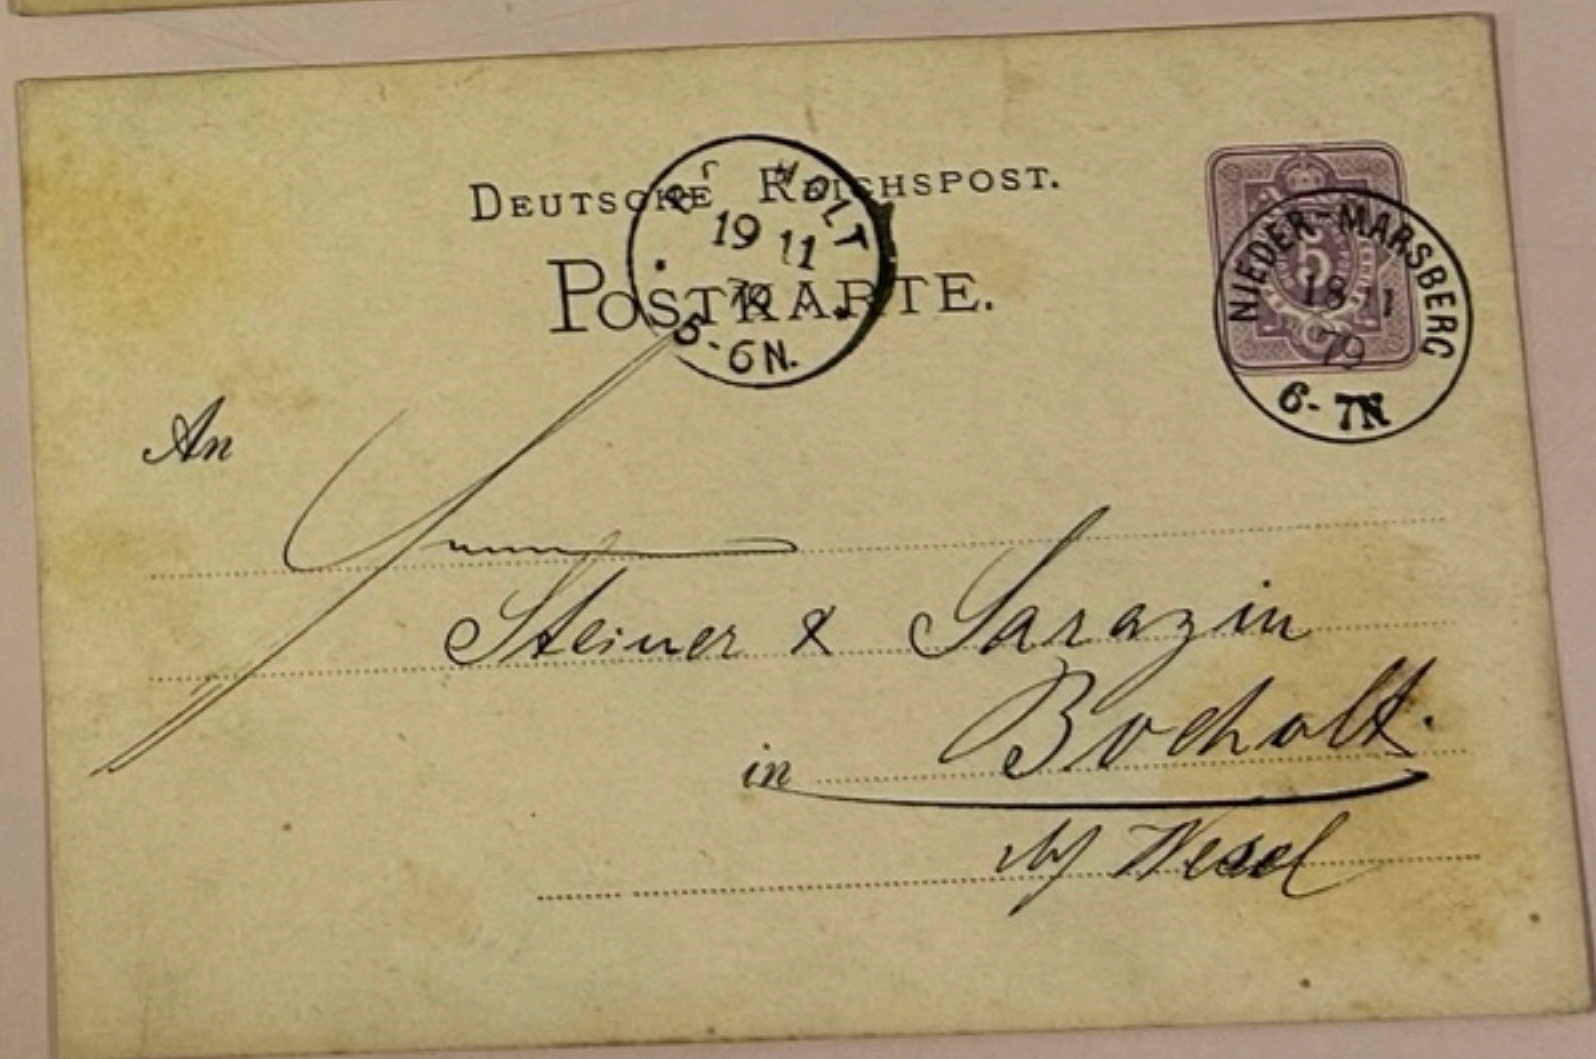 DEUTSCHE REICHSPOST.
POSTKARTE.
HOLT
19 11
79
5-6N.
NIEDER-MARSBERG
18 11
79
6-7N
5
An
Steiner & Sarazin
in Bocholt.
Wesel